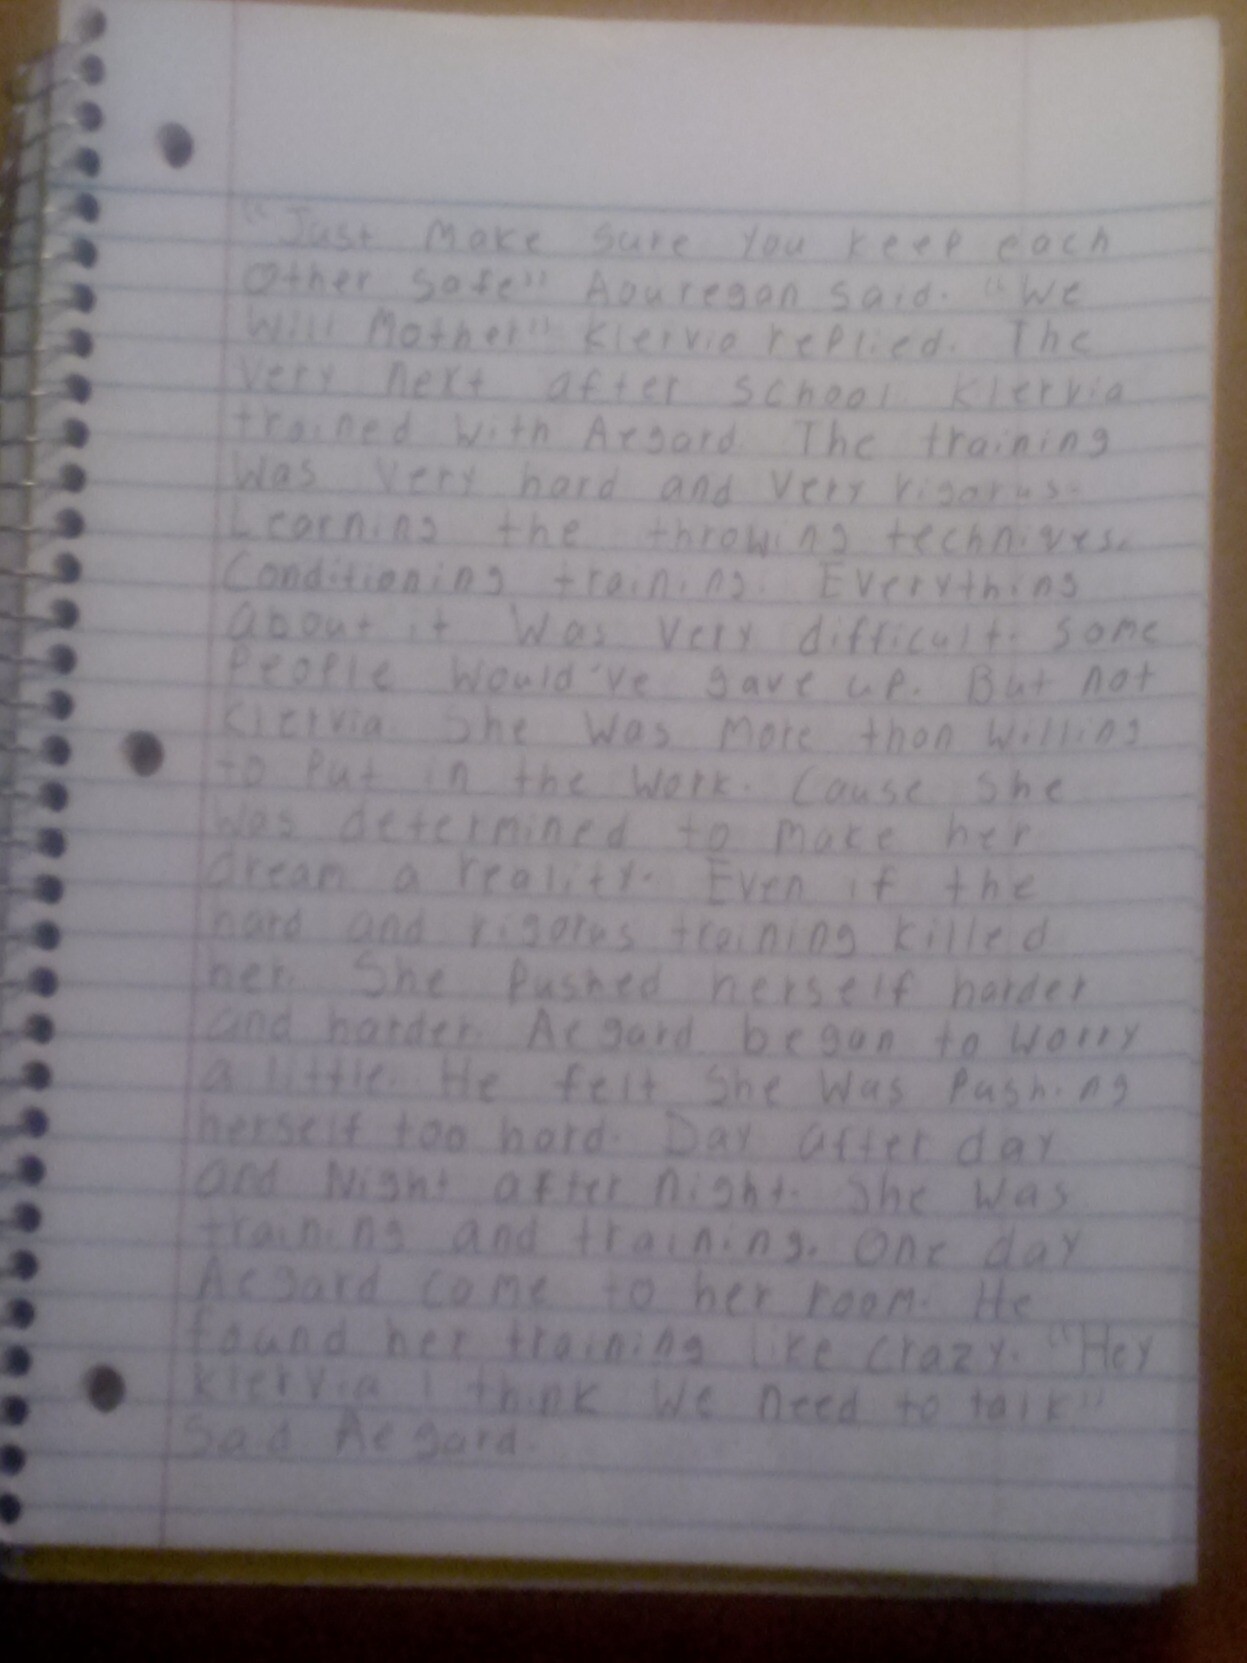 "Just make sure you keep each
other safe" Aouregan said. "We
will Mother" Klervia replied. The
very next after school Klervia
trained with Aegard. The training
was very hard and very rigorus.
Learning the throwing techniques.
Conditioning training. Everything
about it was very difficult. Some
people would've gave up. But not
Klervia. She was more than willing
to put in the work. Cause she
was determined to make her
dream a reality. Even if the
hard and rigorus training killed
her. She pushed herself harder
and harder. Aegard began to worry
a little. He felt she was pushing
herself too hard. Day after day
and Night after night. She was
training and training. One day
Aegard come to her room. He
found her training like crazy. "Hey
Klervia I think we need to talk"
Sad Aegard.